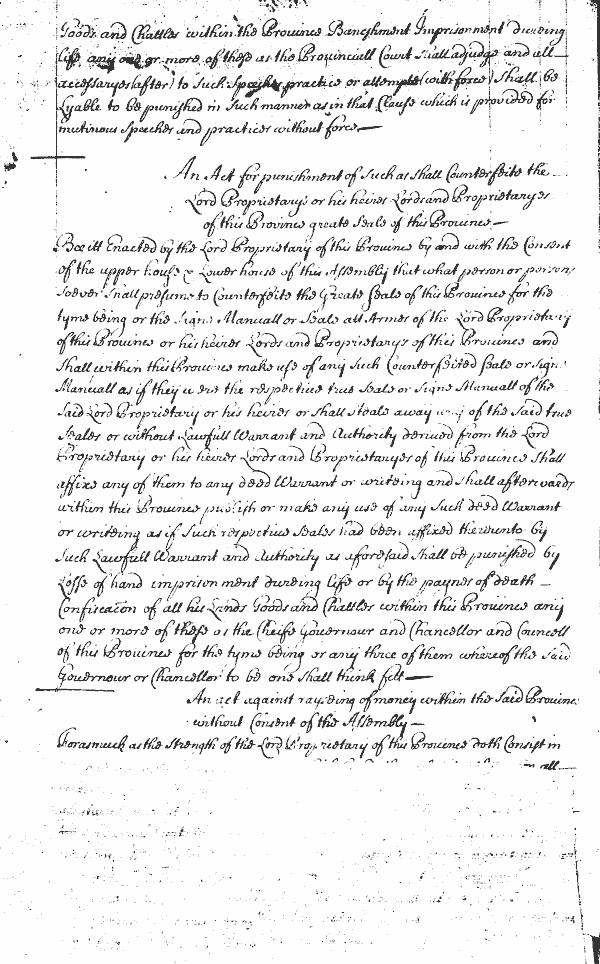 Goods and Chattles within the Province Banishment Imprisonment dureing
life, any one or more of these as the Provinciall Court shall adjudge and all
accessaryes (after) to such Speeches practice or attempts (with force) shall be
Lyable to be punished in such manner as in that Clause which is provided for
mutinous speeches and practices without force
An Act for punishment of such as shall Counterfeite the
Lord Proprietarys or his heires Lords and Proprietaryes
of this Province greate Seale of this Province
Bee itt Enacted by the Lord Proprietary of this Province by and with the Consent
of the upper house & Lower house of this Assembly that what person or persons
soever shall presume to Counterfeite the Greate Seale of this Province for the
tyme being or the Signe Manuall or Seale att Armes of the Lord Proprietary
of this Province or his heires Lords and Proprietarys of this Province and
shall within this Province make use of any such Counterfeited Seale or Signe
Manuall as if they were the respective true Seale or Signe Manuall of the
said Lord Proprietary or his heires or shall steale away any of the said true
Seales or without Lawfull Warrant and Authority derived from the Lord
Proprietary or his heires Lords and Proprietaryes of this Province shall
affixe any of them to any deed Warrant or writeing and shall afterwards
within this Province publish or make any use of any such deed Warrant
or writeing as if such respective Seales had been affixed thereunto by
such Lawfull Warrant and Authority as aforesaid shall be punished by
Losse of hand imprisonment dureing life or by the paynes of death
Confiscacon of all his Lands Goods and Chattles within this Province any
one or more of these as the Cheife Governour and Chancellor and Councell
of this Province for the tyme being or any three of them whereof the said
Governour or Chancellor to be one shall think fitt
An act against rayseing of money within the said Province
without Consent of the Assembly
Forasmuch as the strength of the Lord Proprietary of this Province doth Consist in
all